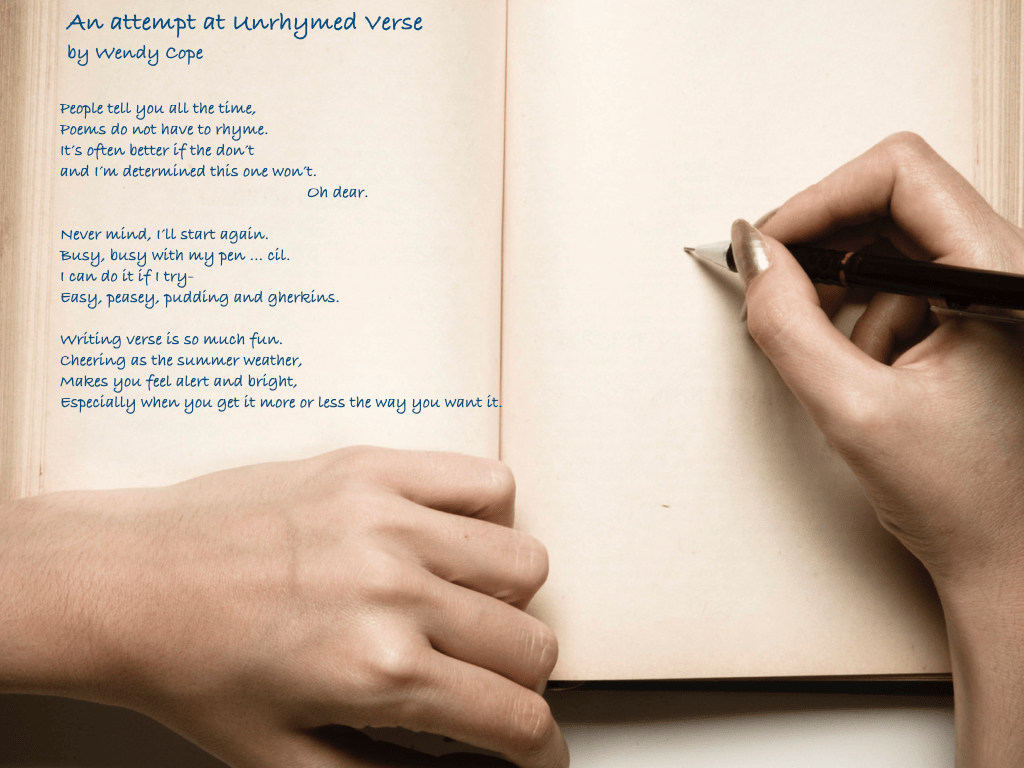 An attempt at Unrhymed Verse
by Wendy Cope
People tell you all the time,
Poems do not have to rhyme.
It's often better if the don't
and I'm determined this one won't.
Oh dear.
Never mind, I'll start again.
Busy, busy with my pen ... cil.
I can do it if I try-
Easy, peasey, pudding and gherkins.
Writing verse is so much fun.
Cheering as the summer weather,
Makes you feel alert and bright,
Especially when you get it more or less the way you want it.